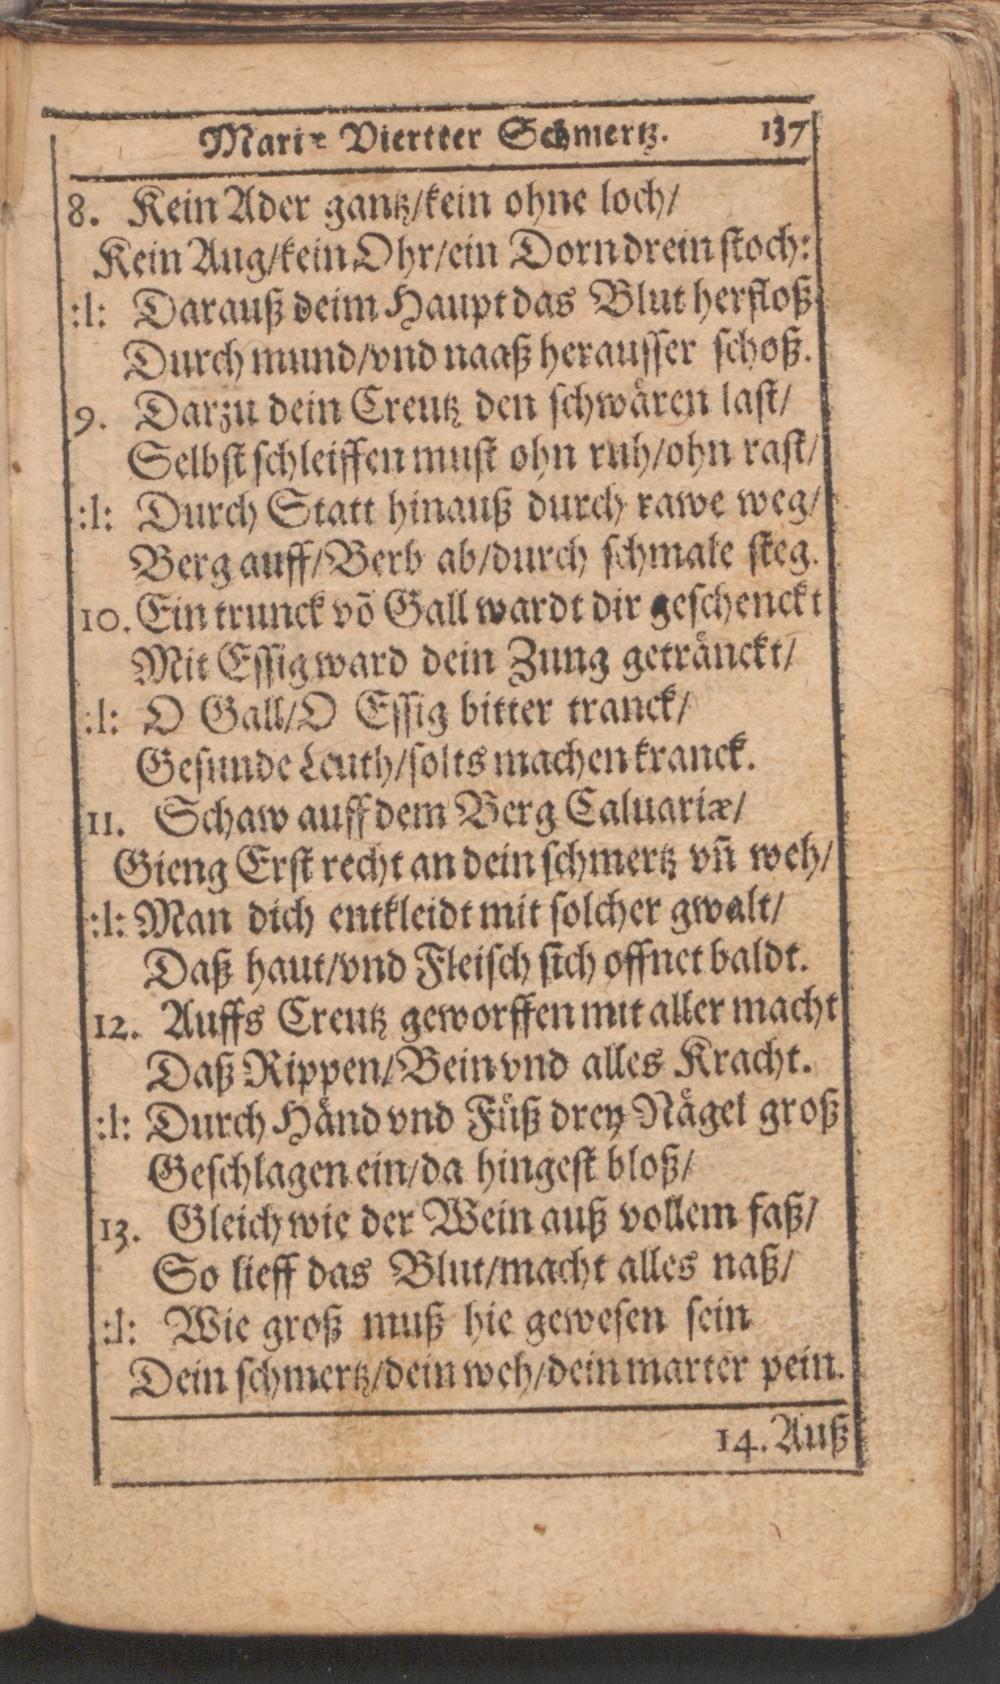 Mariæ Viertter Schmertz. 137
8. Kein Ader gantz/kein ohne loch/
Kein Aug/kein Ohr/ein Dorn drein stoch:
:l: Darauß deim Haupt das Blut herfloß
Durch mund/vnd naaß herausser schoß.
9. Darzu dein Creutz den schwären last/
Selbst schleiffen must ohn ruh/ohn rast/
:l: Durch Statt hinauß durch rawe weg/
Berg auff/Berb ab/durch schmale steg.
10. Ein trunck võ Gall wardt dir geschenckt
Mit Essig ward dein Zung getränckt/
:l: O Gall/O Essig bitter tranck/
Gesunde Leuth/solts machen kranck.
11. Schaw auff dem Berg Caluariæ/
Gieng Erst recht an dein schmertz vñ weh/
:l: Man dich entkleidt mit solcher gwalt/
Daß haut/vnd Fleisch sich offnet baldt.
12. Auffs Creutz geworffen mit aller macht
Daß Rippen/Bein vnd alles Kracht.
:l: Durch Händ vnd Füß drey Nägel groß
Geschlagen ein/da hingest bloß/
13. Gleich wie der Wein auß vollem faß/
So lieff das Blut/macht alles naß/
:l: Wie groß muß hie gewesen sein
Dein schmertz/dein weh/dein marter pein.
14. Auß